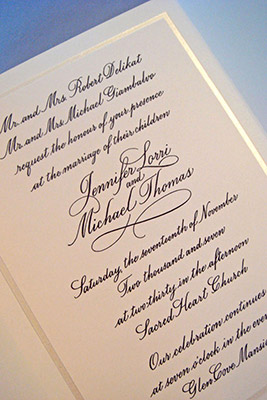 Mr. and Mrs. Robert Delikat
Mr. and Mrs Michael Giambalvo
request the honour of your presence
at the marriage of their children
Jennifer Lorri
and
Michael Thomas
Saturday, the seventeenth of November
Two thousand and seven
at two-thirty in the afternoon
Sacred Heart Church
Our celebration continues
at seven o'clock in the
Glen Cove